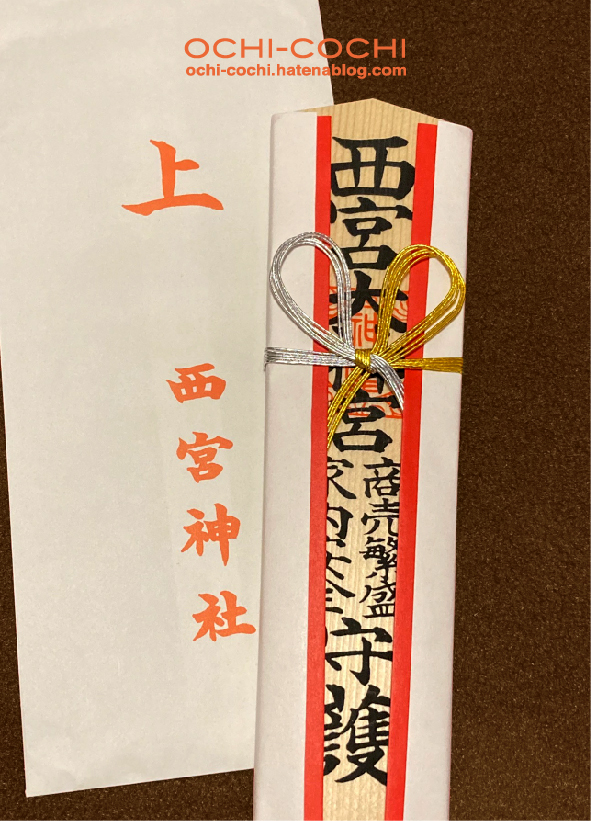 OCHI-COCHI
ochi-cochi.hatenablog.com
上
西宮神社
西宮大神宮
商売繁盛
家内安全
守護